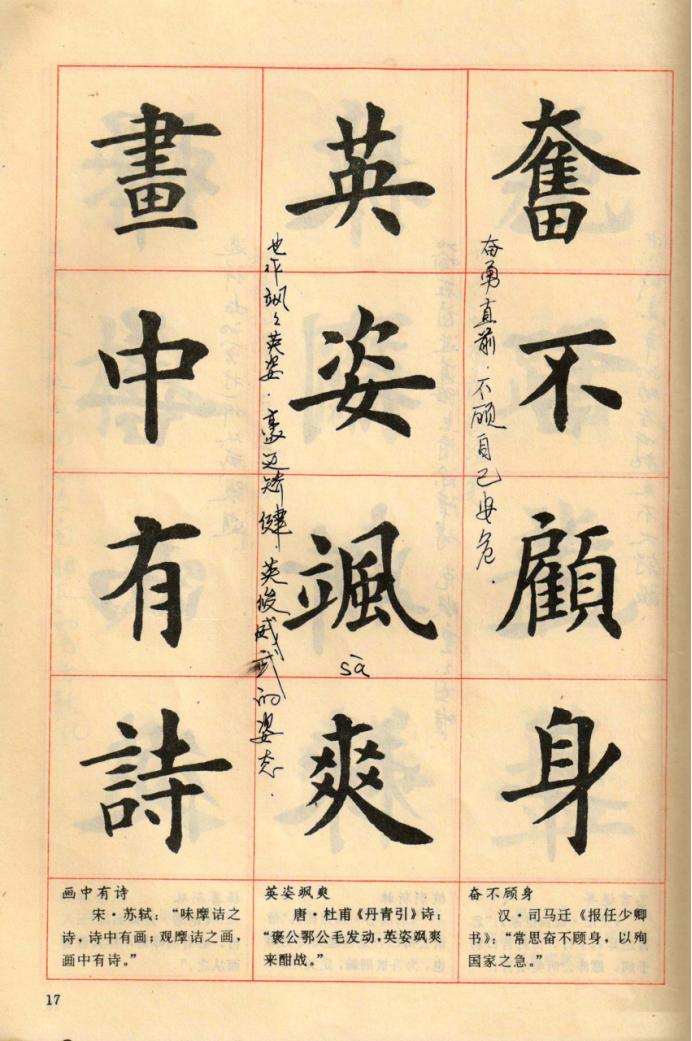 奮不顧身
奋勇直前．不顾自己安危．
英姿颯爽
也作飒飒英姿．豪迈矫健．英俊威武的姿态．
sà
畫中有詩
奋不顾身
汉·司马迁《报任少卿
书》：“常思奋不顾身，以殉
国家之急。”
英姿飒爽
唐·杜甫《丹青引》诗：
“褒公鄂公毛发动，英姿飒爽
来酣战。”
画中有诗
宋·苏轼：“味摩诘之
诗，诗中有画；观摩诘之画，
画中有诗。”
17